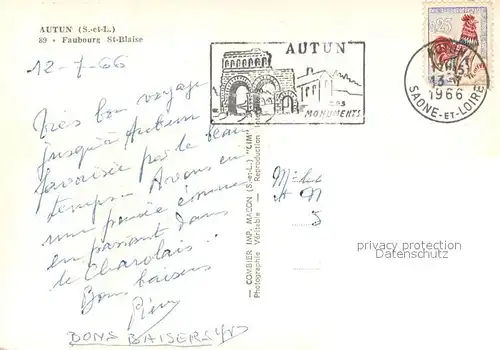 AUTUN (S.-et-L.)
89 - Faubourg St-Blaise
12-7-66
Très bon voyage
jusqu'à Autun
favorisée par le beau
temps. Avons eu
une pensée émue
en passant dans
le Charolais..
Bons baisers
BONS BAISERS
0,25
AUTUN
SES
MONUMENTS
AUTUN
13
1966
SAONE-ET-LOIRE
— COMBIER IMP. MACON (S.-et-L.) "CIM" —
Photographie Véritable - Reproduction
privacy protection
oldthing.com